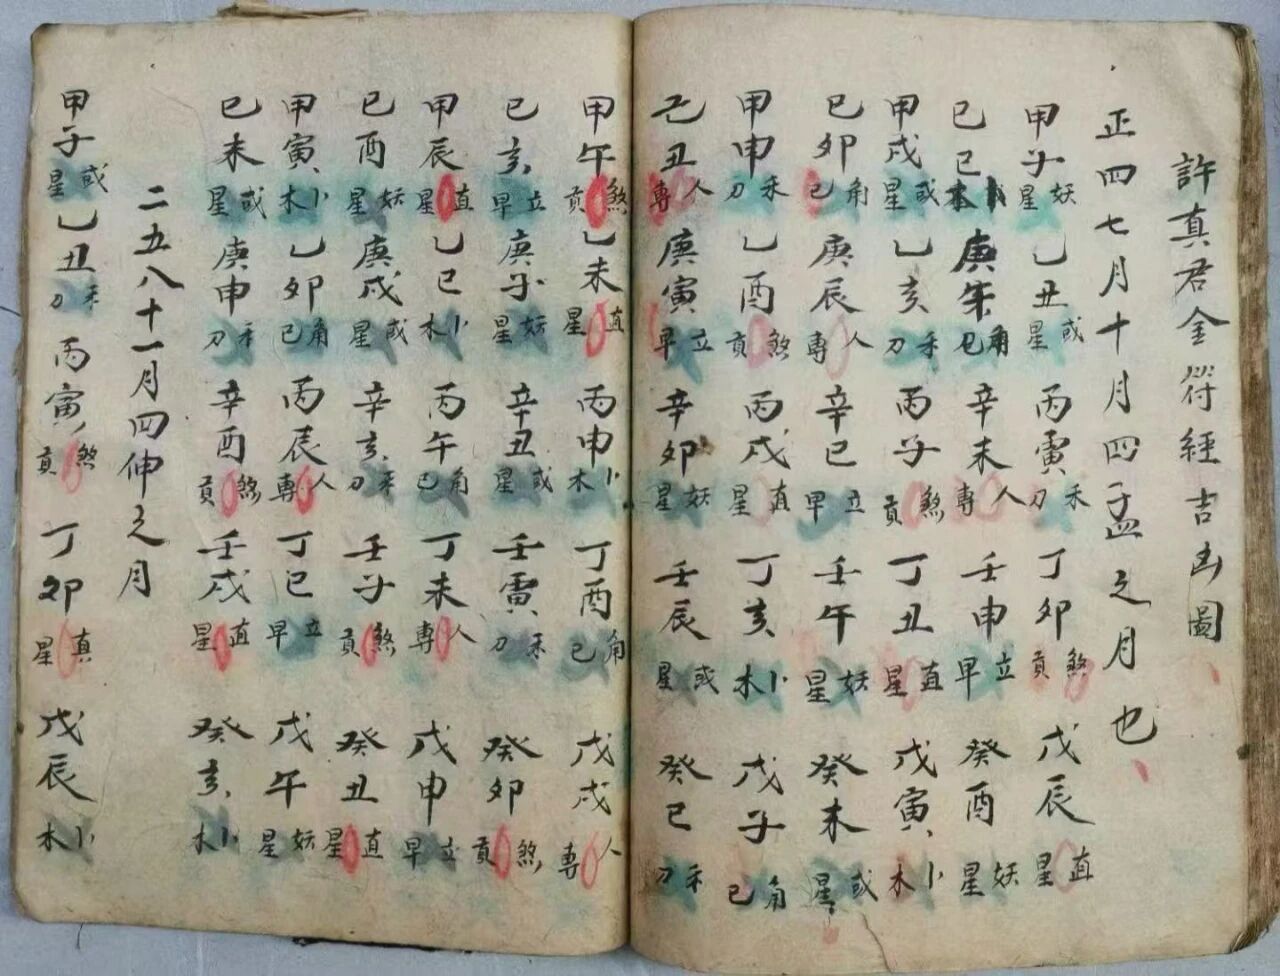 許真君金符經吉凶圖
正四七月十月四孟之月也
甲子妖星乙丑或星丙寅禾刀丁卯煞貢戊辰直星
己巳卜木庚午角巳辛未人專壬申立早癸酉妖星
甲戌或星乙亥禾刀丙子煞貢丁丑直星戊寅卜木
己卯角巳庚辰人專辛巳立早壬午妖星癸未或星
甲申禾刀乙酉煞貢丙戌直星丁亥卜木戊子角巳
己丑人專庚寅立早辛卯妖星壬辰或星癸巳禾刀
甲午煞貢乙未直星丙申卜木丁酉角巳戊戌人專
己亥立早庚子妖星辛丑或星壬寅禾刀癸卯煞貢
甲辰直星乙巳卜木丙午角巳丁未人專戊申立早
己酉妖星庚戌或星辛亥禾刀壬子煞貢癸丑直星
甲寅卜木乙卯角巳丙辰人專丁巳立早戊午妖星
己未或星庚申禾刀辛酉煞貢壬戌直星癸亥卜木
二五八十一月四伸之月
甲子或星乙丑禾刀丙寅煞貢丁卯真星戊辰卜木